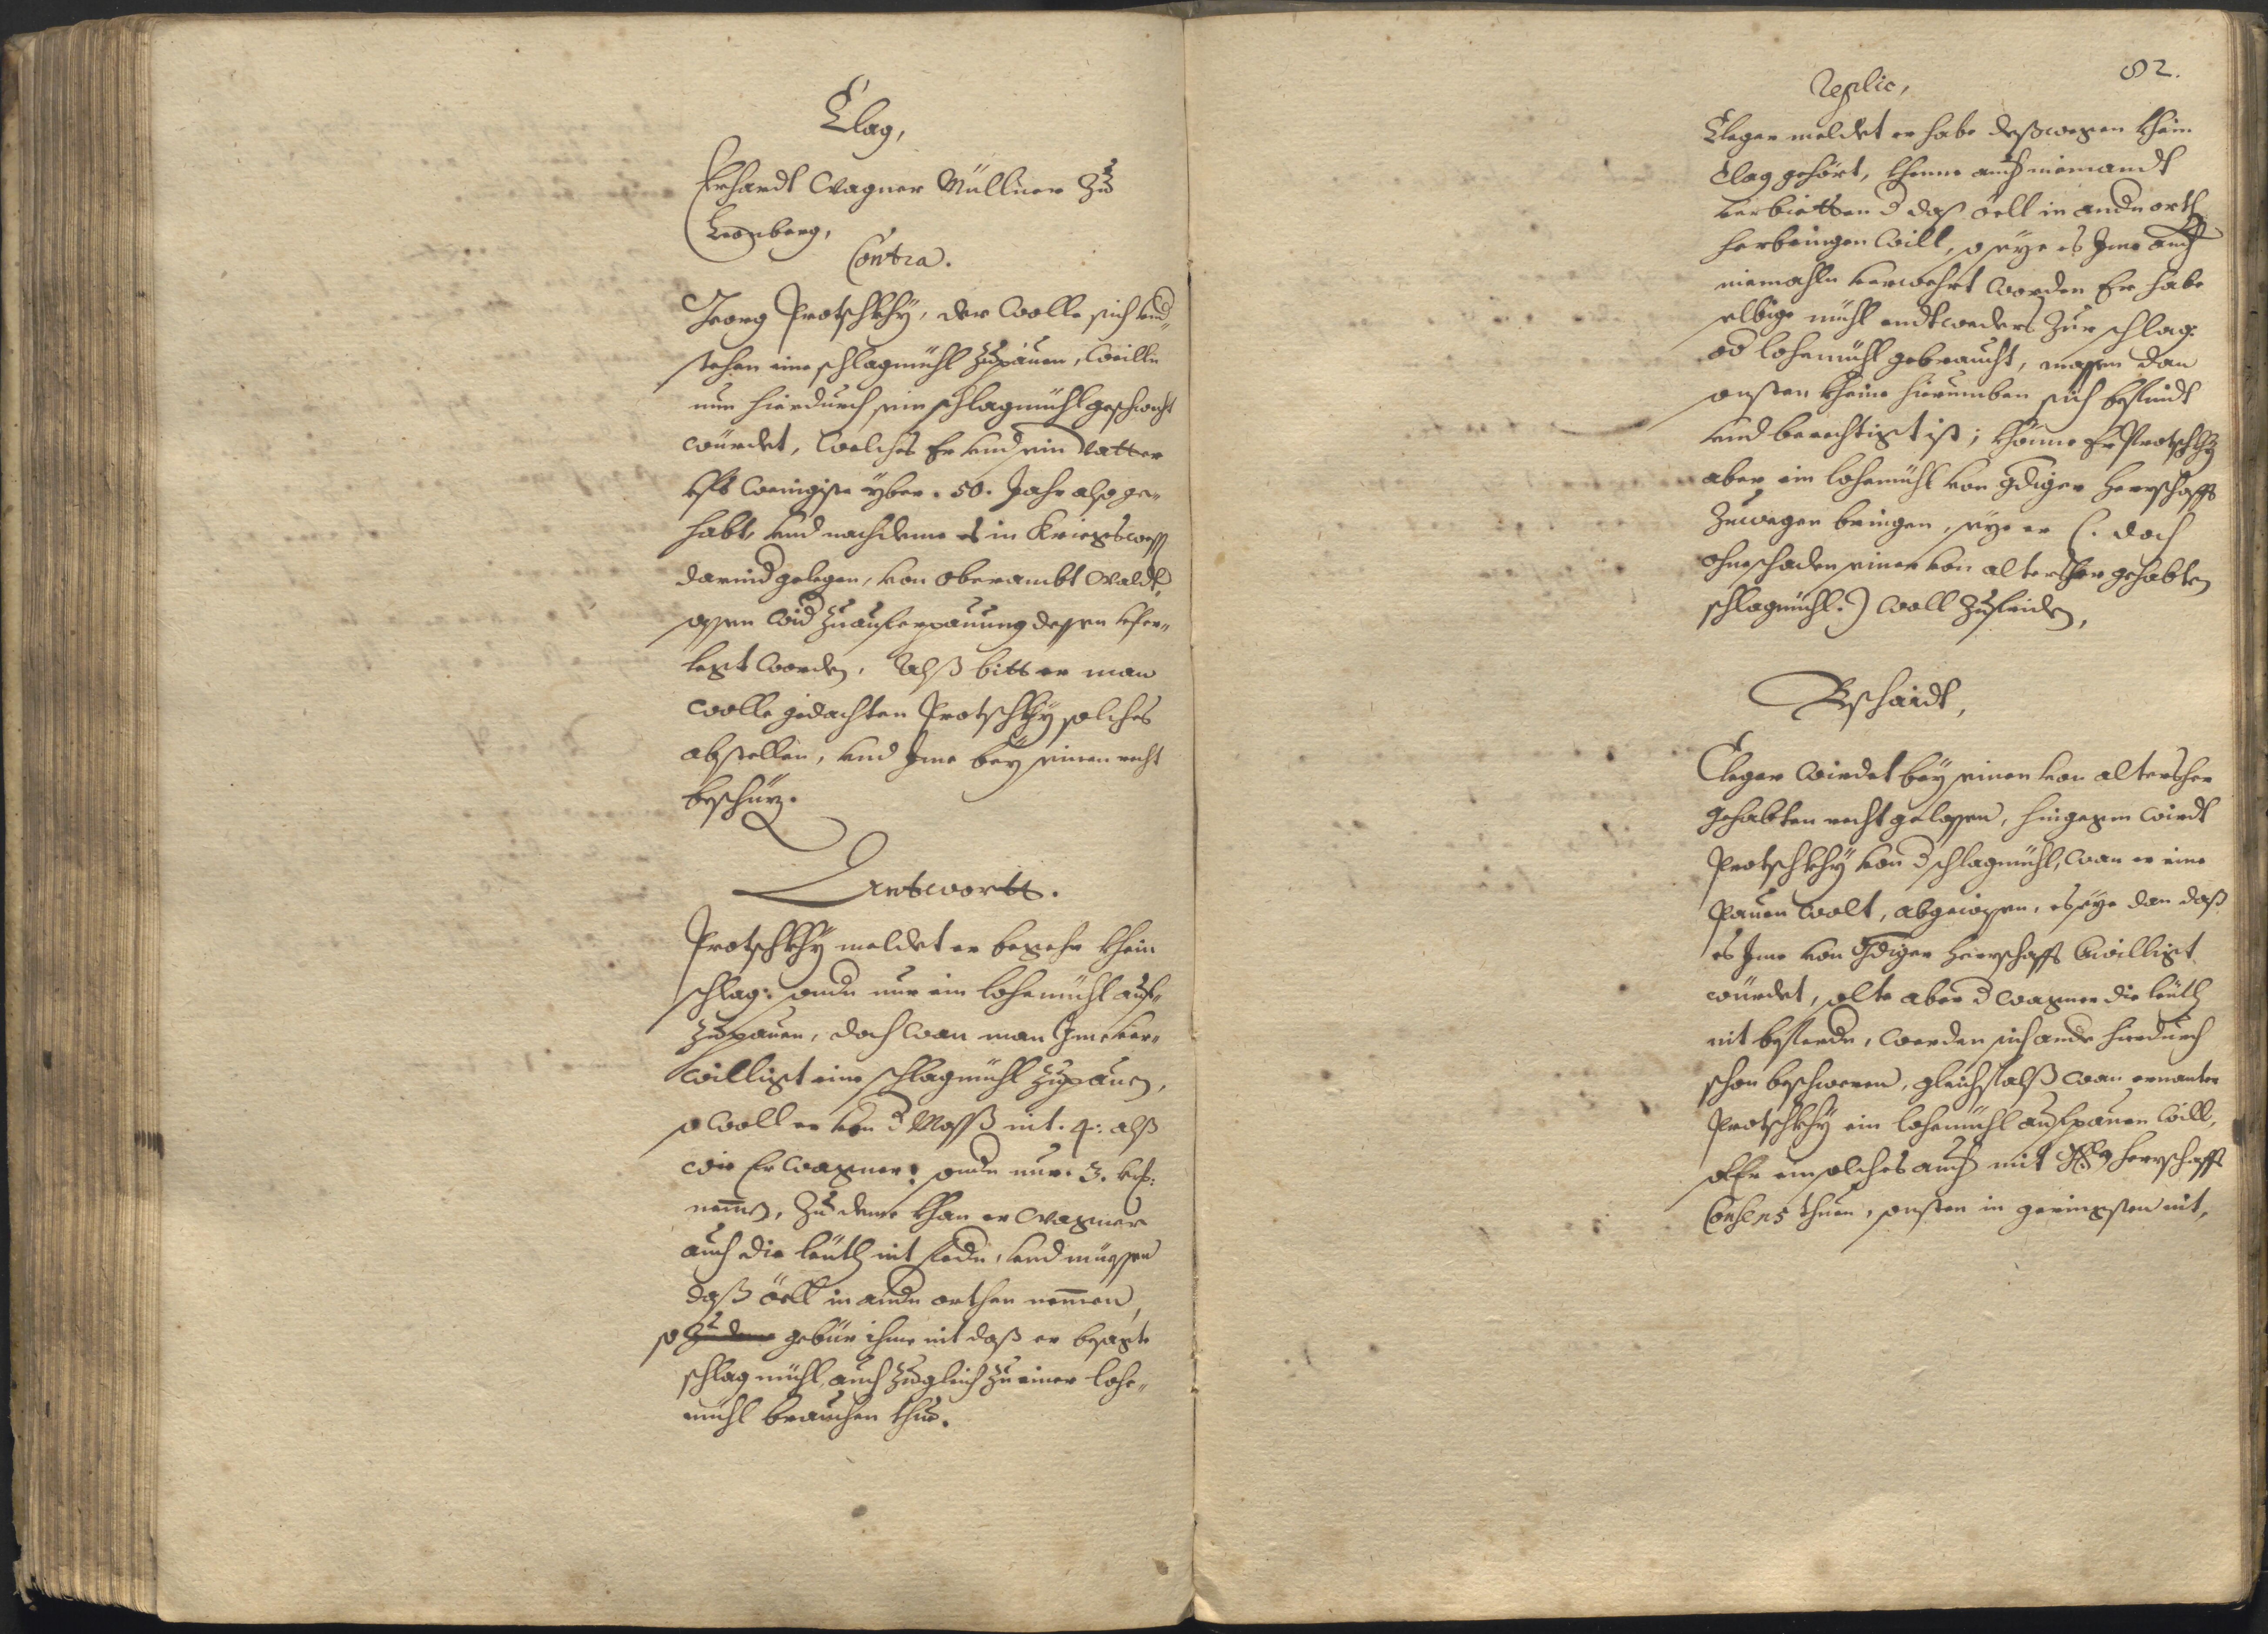 Clag,
Erhardt Wagner Müllner Zu
Leonberg,
Contra.
Georg Protschkhÿ, der wolle sich und„
stehen eine schlagmühl zupauen, weillen
nun hierdurch sein schlagmühl geschwecht
würdet, welches Er und sein Vatter
ufs wenigiste yber. 50. Jahr also ge„
habt, und nachdeme es in Kriegswesen
darnid gelegen, von Oberambt Waldt„
assen wid zu auferpauung dessen ufer„
legt worden, Alß bitt er man
wolle gedachten Protschkhÿ solches
abstellen, und Ime beÿ seinen recht
beschüzen.
Antwortt.
Protschkhÿ meldet er begehr khein
schlag: sondn nur ein lohemühl auf„
zupauen, doch wan man Ime ver„
willigt eine schlagmühl zupauen,
so woll er von d Mass nit. 4: alß
wie Er Wagner: sondn nur. 3. kr:
nemen, Zu deme khan er Wagner
auch die leuth nit fürdn, und müessen
daß öell in andn orthen nemmen,
so Zu deme gebür ihme nit daß er besagte
schlagmühl, auch zugleich zu einer lohe„
mühl brauchen thue.
82.
Replic,
Cleger meldet er habe deßwegen khein
Clag gehört, khenne auch niemandt
verbietten d daß öell in andn orth
herbringen will, so seÿe es Ime auch
niemahln verwehrt worden Er habe
selbige mühl endtweders zur schlag:
od lohemühl gebraucht, massen dan
onsten kheine hierumben sich befindt
und berechtigt ist; khönne Er Protschkhÿ
aber ein lohemühl von gdiger Herrschafft
Zuwegen bringen, seÿe er (: doch
ohne schaden seiner von altersher gehabten
schlagmühl:) woll zufriden,
Bschaidt,
Cleger wirdet beÿ seinen von altersher
gehabten recht gelassen, hingegen wirdt
Protschkhÿ von d schlagmühl, wan er eine
Pauen wolt, abgewissen, es seÿe dan daß
es Ime von Gdiger Herrschafft bewilligt
würdet, solte aber d Wagner die leuth
nit befürdn, werden sich andr hierdurch
schon beschweren, gleichfalß wan ernanter
Protschkhÿ ein lohemühl aufpauen will,
soll Er ein solches auch mit herrschafft
Consens thuen, sonsten in geringsten nit,